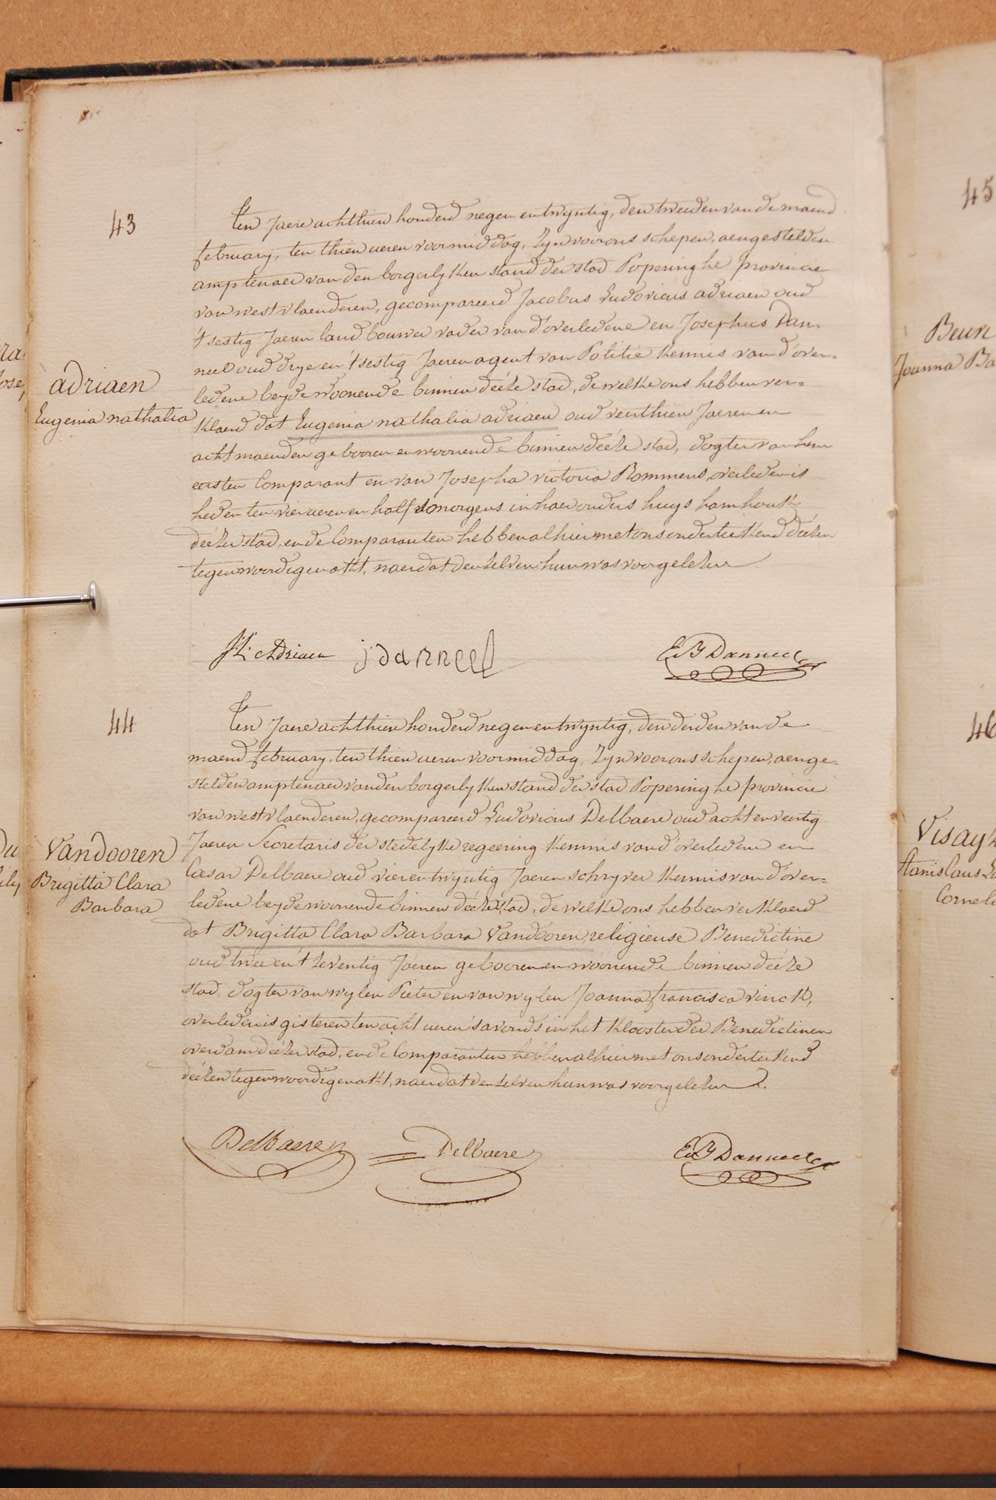 43
Ten Jaere achthien honderd negen en twyntig, den tweeden van de maend
february, ten thien ueren voormiddag, Zyn voor ons schepen, aengestelden
amptenaer van den borgerlyken stand der stad Poperinghe provincie
van westvlaenderen, gecompareerd Jacobus Ludovicus adriaen oud
't sestig Jaeren landbouwer vader van d'overledene en Josephus Dan-
neel oud drye en 't sestig Jaeren agent van Politie kennis van d'over-
ledene beyde woonende binnen deeze stad, de welke ons hebben ver-
klaerd dat Eugenia nathalia adriaen oud veerthien Jaeren en
acht maenden gebooren en woonende binnen deeze stad, dogter van hem
eersten Comparant en van Josepha victoria Rommens, overleden is
heden ten vier ueren en half smorgens in haer ouders huys hamhoek
deezer stad, en de Comparanten hebben alhier met ons onderteekend deezen
tegenwoordigen akt, naer dat den zelven hun was voorgelezen
adriaen
Eugenia nathalia
JL Adriaen
j danneel
E Danneel
44
Ten Jaere achthien honderd negen en twyntig, den derden van de
maend february, ten thien ueren voormiddag, Zyn voor ons schepen, aenge-
stelden amptenaer van den borgerlyken stand der stad Poperinghe provincie
van westvlaenderen, gecompareerd Ludovicus Delbaere oud acht en veertig
Jaeren Secretaris der stedelyke regeering kennis van d'overledene en
Cæsar Delbaere oud vier en twyntig Jaeren schryver kennis van d'over-
ledene beyde woonende binnen deeze stad, de welke ons hebben verklaerd
dat Brigitta Clara Barbara Vandooren, religieuse Benedictine
oud twee en t'zeventig Jaeren gebooren en woonende binnen deeze
stad, dogter van wylen Pieter en van wylen Joanna francisca verick,
overleden is gisteren ten acht ueren s'avonds in het klooster der Benedictinen
over dam deezer stad, en de Comparanten hebben alhier met ons onderteekend
deezen tegenwoordigen akt, naer dat den zelven hun was voorgelezen.
Vandooren
Brigitta Clara
Barbara
Delbaere
Delbaere
E Danneel
45
Beun
Joanna Ba
46
Visag
Stanislaus
Corneli